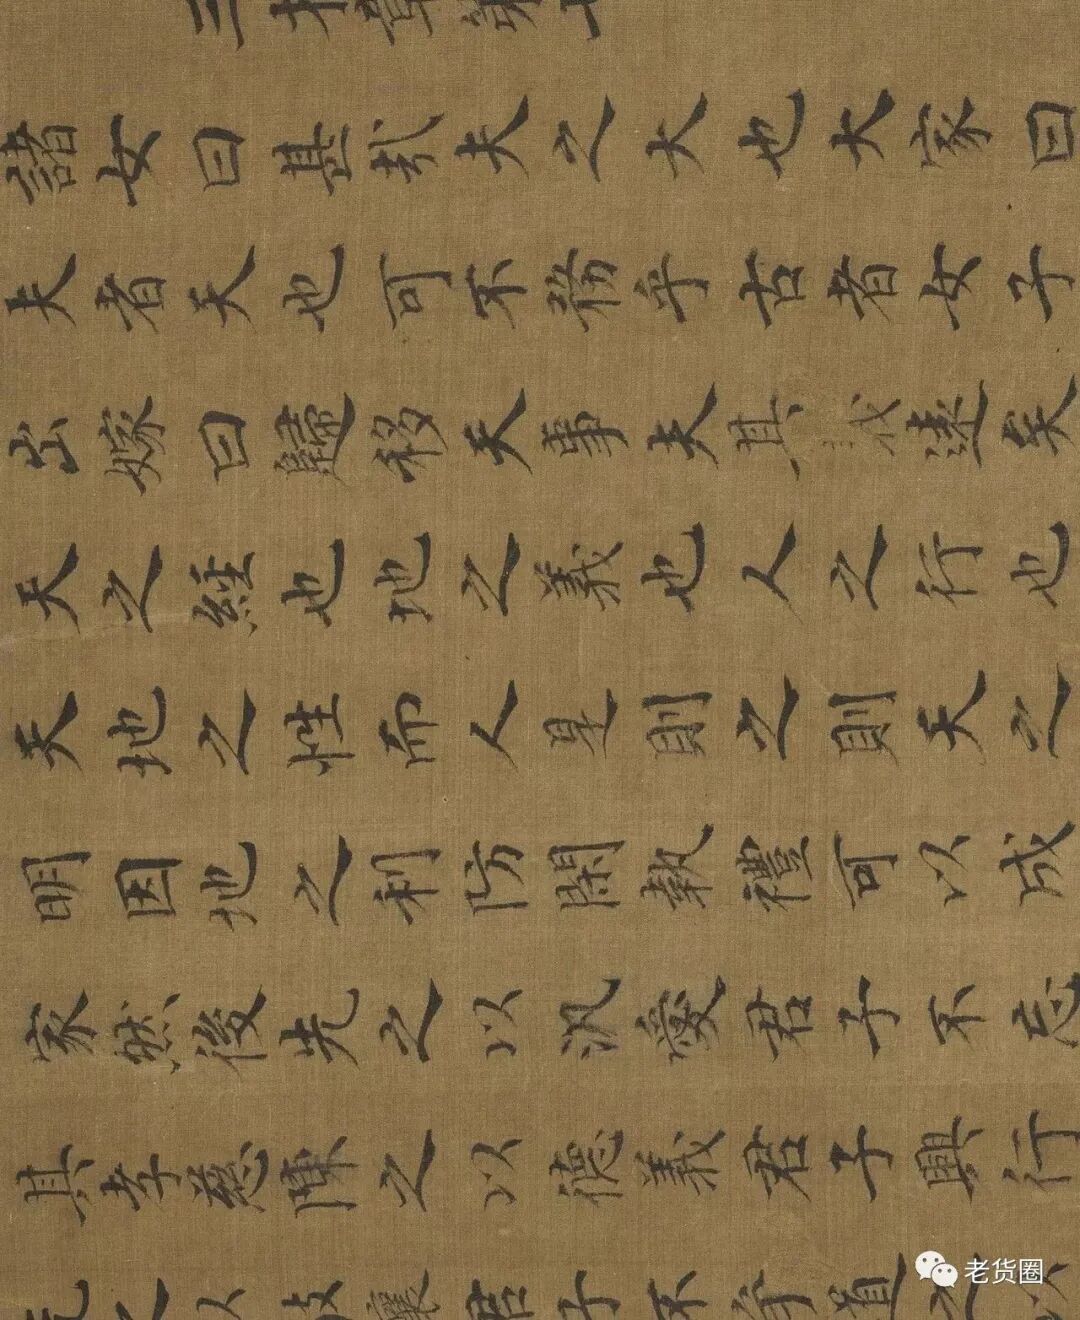 三才章第七
諸女曰甚哉夫之大也大家曰
夫者天也可不務乎古者女子
出嫁曰歸移天事夫其義遠矣
天之經也地之義也人之行也
天地之性而人是則之則天之
明因地之利防閑執禮可以成
家然後先之以汎愛君子不忘
其孝慈陳之以德義君子興行
先之以敬讓君子不爭之以
老货圈